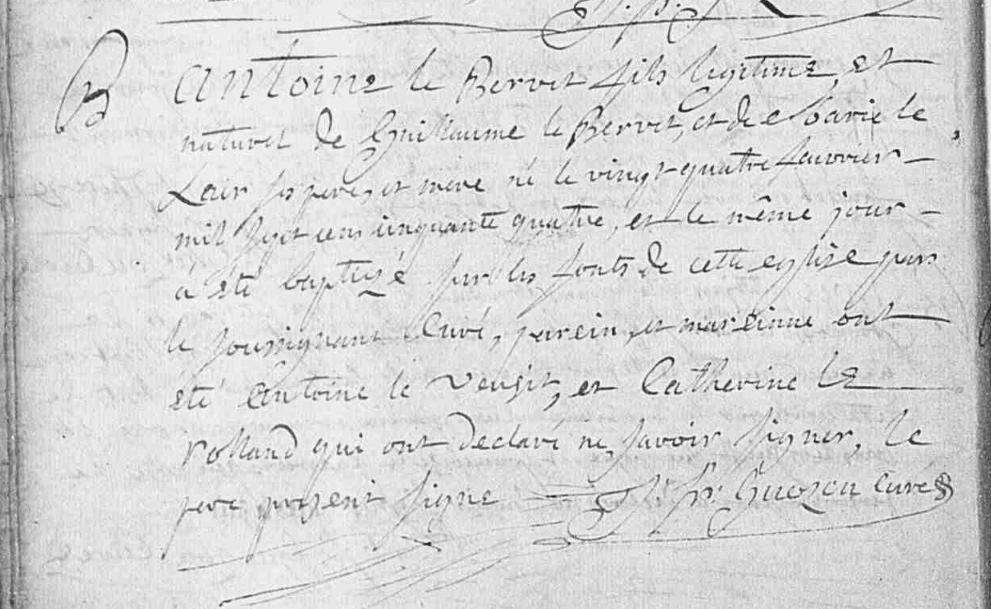 B
Antoine le Bervet fils legitime, et
naturel de Guillaume le Bervet, et de Marie le
Lair ses pere, et mere né le vingt-quatre fauvrier -
mil sept cens cinquante quatre, et le même jour -
a été baptizé sur les fonts de cette eglise par
le soussignant Curé, parein, et mareinne ont
été Antoine le , et Catherine le
Rolland qui ont declaré ne savoir signer, le
pere present signe Curé